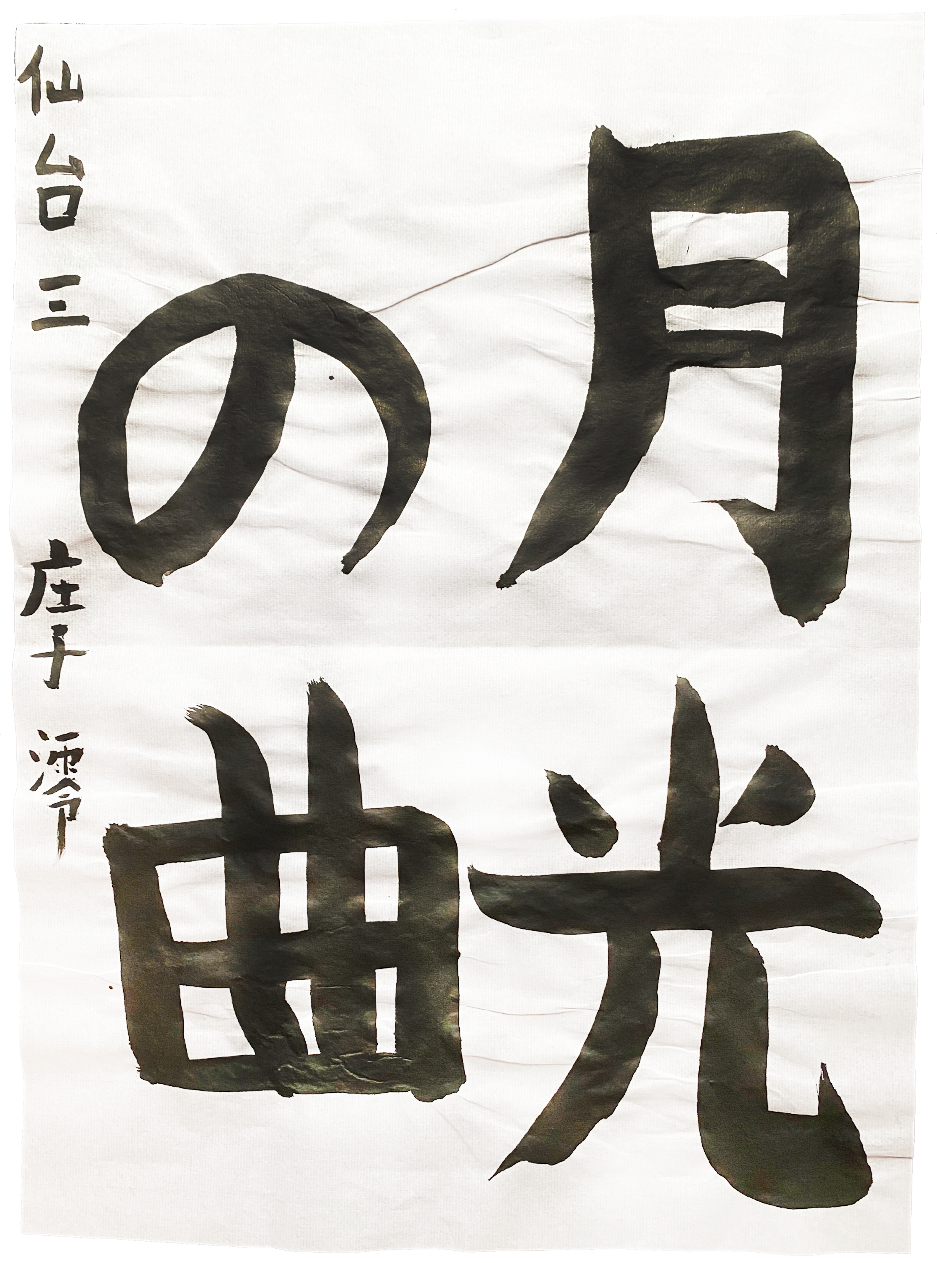 月光
の曲
仙台三 庄子 澪